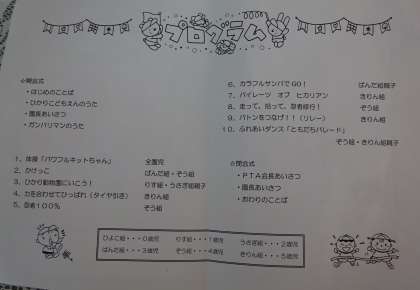 プログラム
☆開会式
・はじめのことば
・ひかりこどもえんのうた
・園長あいさつ
・ガンバリマンのうた
1、体操「パワフルキットちゃん」 全園児
2、かけっこ ぱんだ組・ぞう組
3、ひかり動物園にいこう! りす組・うさぎ組親子
4、力を合わせてひっぱれ(タイヤ引き) きりん組
5、忍者100% ぞう組
6、カラフルサンバでGO! ぱんだ組親子
7、パイレーツ オブ ヒカリアン きりん組
8、走って、拾って、忍者修行! ぞう組
9、バトンをつなげ!!(リレー) きりん組
10、ふれあいダンス「ともだちパレード」
ぞう組・きりん組親子
☆閉会式
・PTA会長あいさつ
・園長あいさつ
・おわりのことば
ひよこ組・・・0歳児 りす組・・・1歳児 うさぎ組・・・2歳児
ぱんだ組・・・3歳児 ぞう組・・・4歳児 きりん組・・・5歳児